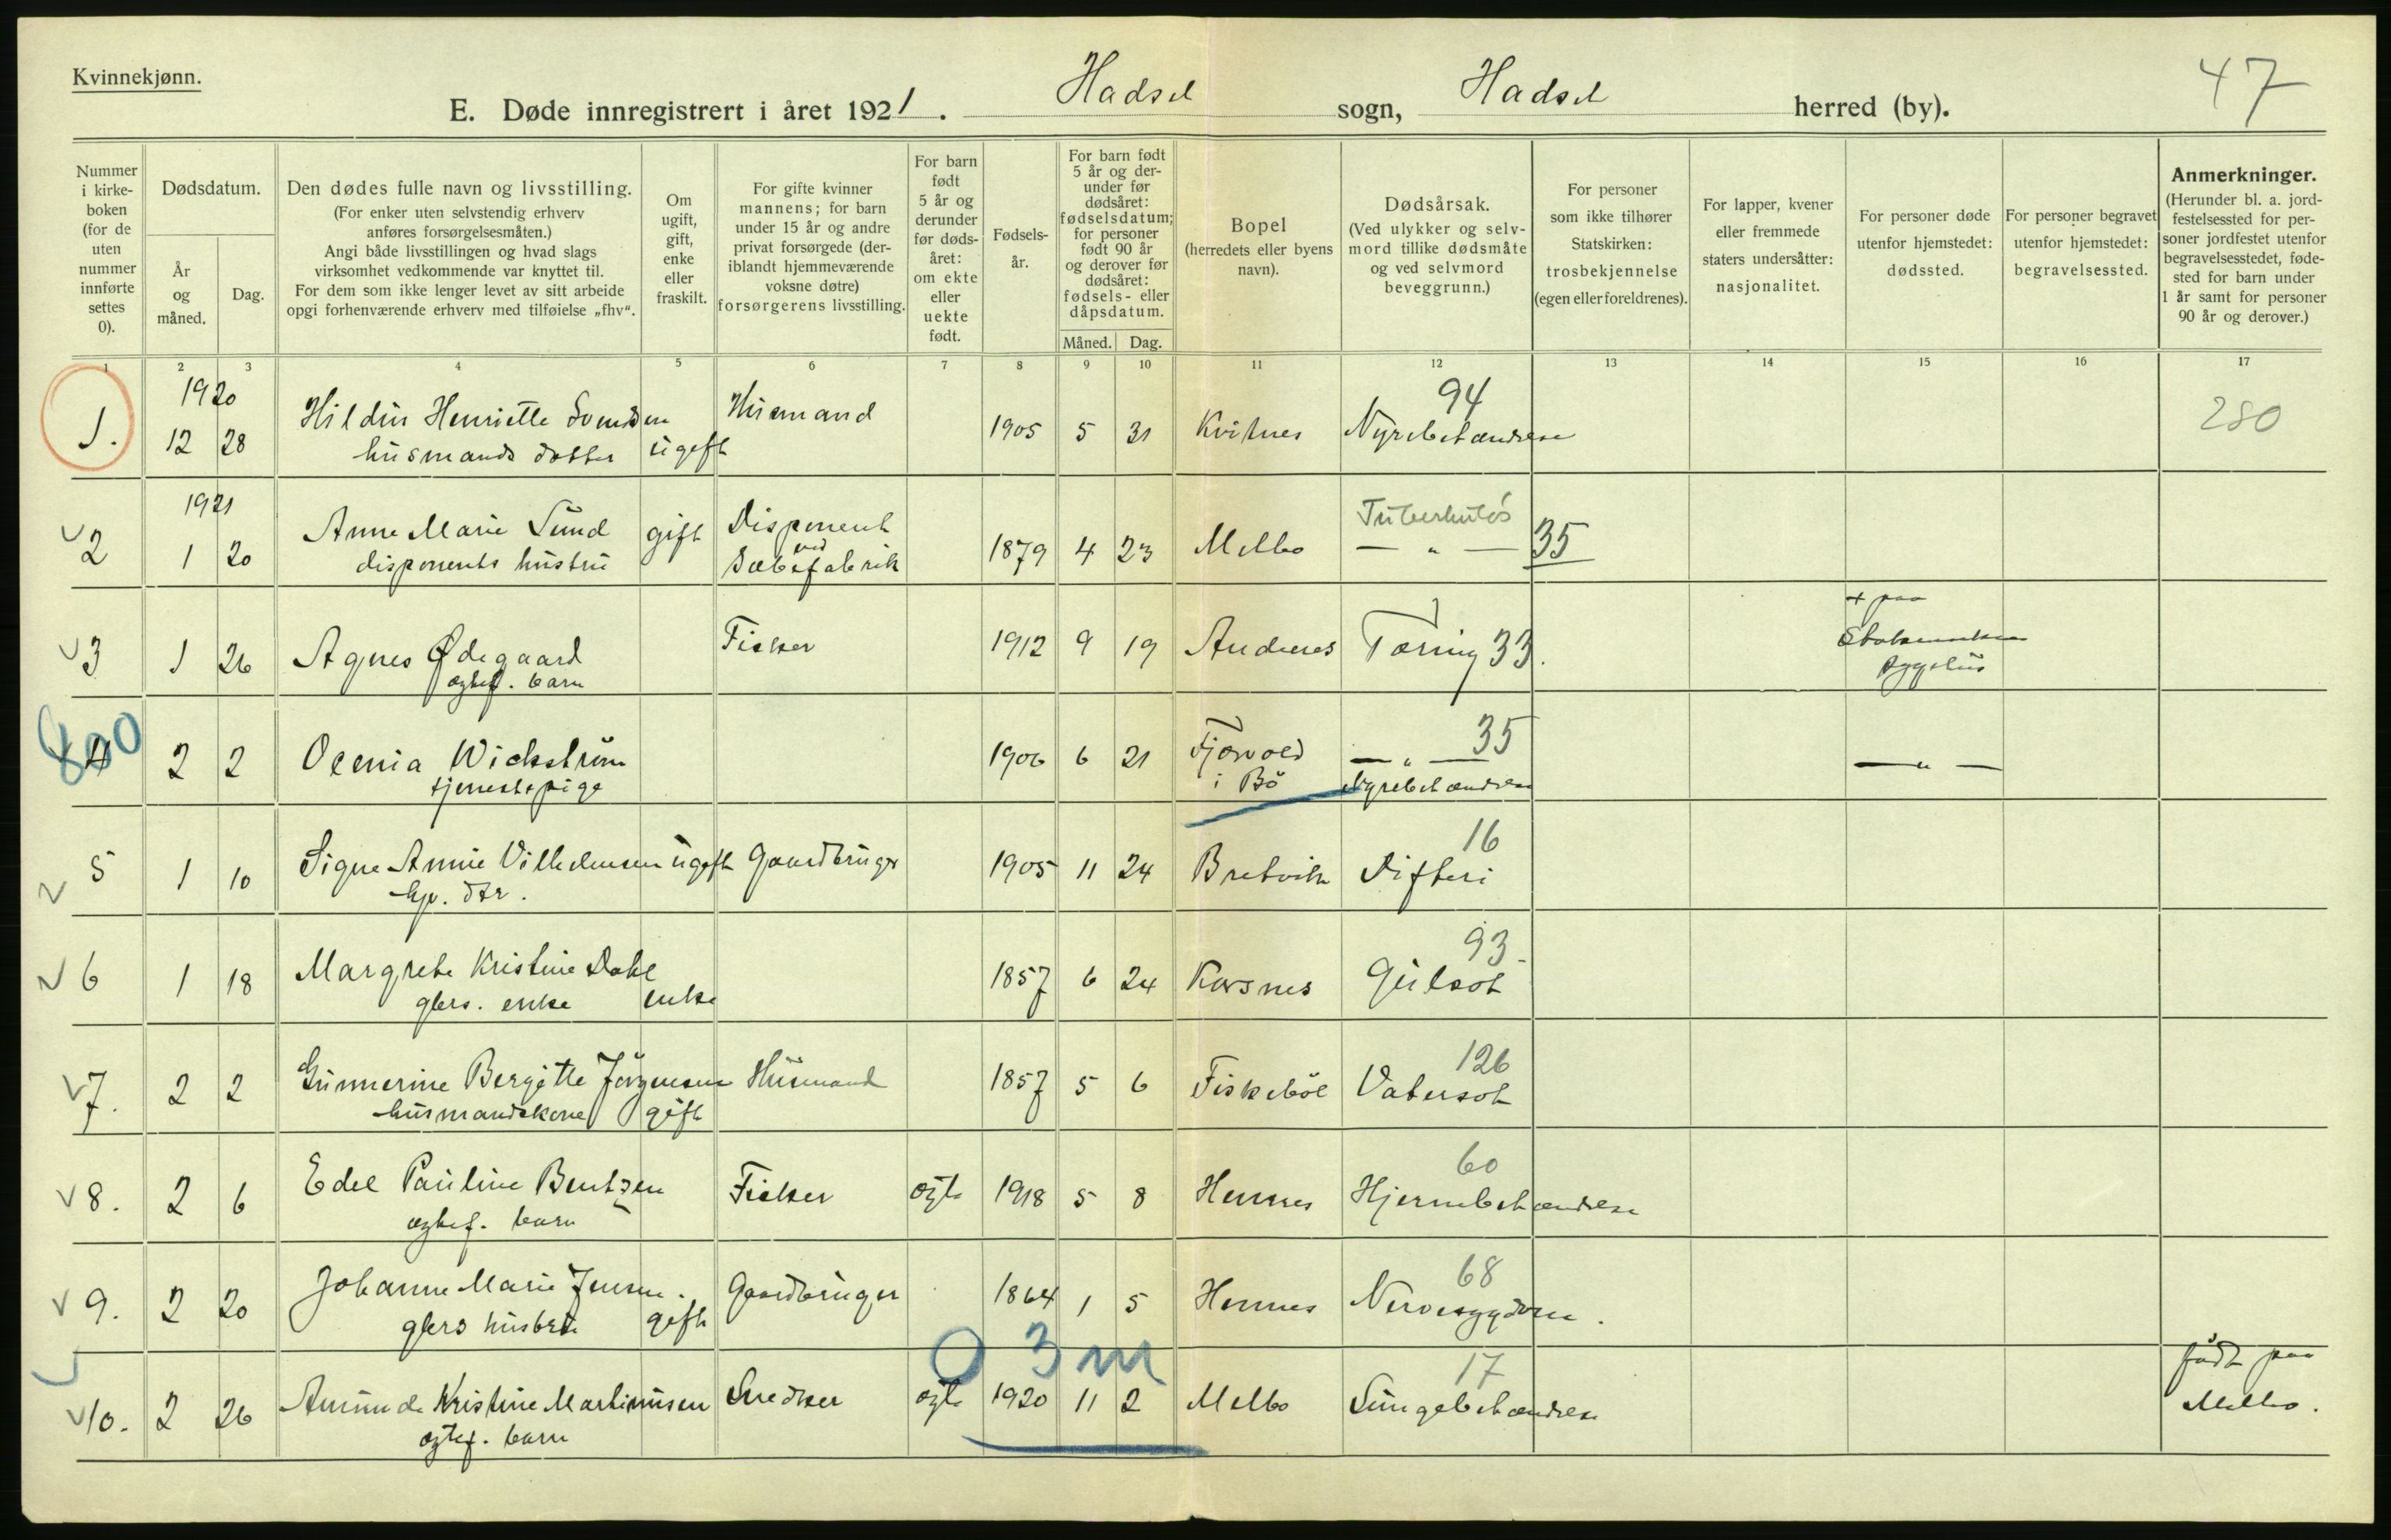 Kvinnekjønn.
47
E. Døde innregistrert i året 1921. Hadsel sogn, Hadsel herred (by).
Nummer i kirke-boken (for de uten nummer innførte settes 0).
Dødsdatum.
År og måned.
Dag.
Den dødes fulle navn og livsstilling.
(For enker uten selvstendig erhverv anføres forsørgelsesmåten.)
Angi både livsstillingen og hvad slags virksomhet vedkommende var knyttet til.
For dem som ikke lenger levet av sitt arbeide opgi forhenværende erhverv med tilføielse „fhv“.
Om ugift, gift, enke eller fraskilt.
For gifte kvinner mannens; for barn under 15 år og andre privat forsørgede (deriblandt hjemmeværende voksne døtre) forsørgerens livsstilling.
For barn født 5 år og derunder før dødsåret: om ekte eller uekte født.
Fødselsår.
For barn født 5 år og derunder før dødsåret: fødselsdatum; for personer født 90 år og derover før dødsåret: fødsels- eller dåpsdatum.
Måned. Dag.
Bopel
(herredets eller byens navn).
Dødsårsak.
(Ved ulykker og selvmord tillike dødsmåte og ved selvmord beveggrunn.)
For personer som ikke tilhører Statskirken: trosbekjennelse (egen eller foreldrenes).
For lapper, kvener eller fremmede staters undersåtter: nasjonalitet.
For personer døde utenfor hjemstedet: dødssted.
For personer begravet utenfor hjemstedet: begravelsessted.
Anmerkninger.
(Herunder bl. a. jordfestelsessted for personer jordfestet utenfor begravelsesstedet, fødested for barn under 1 år samt for personer 90 år og derover.)
1 2 3 4 5 6 7 8 9 10 11 12 13 14 15 16 17
1920 94
1. 12 28 Hildur Henriette Svendsen Husmand 1905 5 31 Kvitnes Nyrebetændelse 280
husmands datter ugift
1921 Tuberkulös
2 1 20 Anne Marie Lund gift Disponent 1879 4 23 Melbo — „ — 35
disponents hustru ved Sæbefabrik
3 1 26 Agnes Ødegaard Fisker 1912 9 19 Andenes Tæring 33. + paa Stokmarknes sygehus
ægtef. barn
800 35
4 2 2 Ocenia Wickström 1906 6 21 Fjærvold — „ — — „ —
tjenestepige i Bö Nyrebetændelse
16
5 1 10 Signe Annie Vilhelmsen ugift Gaardbruger 1905 11 24 Bretvik Difteri
hjv. dtr.
93
6 1 18 Margrete Kristine Dahl 1857 6 24 Korsnes Gulsot
gbrs. enke enke
126
7. 2 2 Gunnerine Bergitte Jörgensen Husmand 1857 5 6 Fiskeböl Vatersot
husmandskone gift
60
8. 2 6 Edel Pauline Bentzen Fisker ægte 1918 5 8 Hennes Hjernebetændelse
ægtef. barn
68
9. 2 20 Johanne Marie Jensen. Gaardbruger 1864 1 5 Hennes Nervesygdom.
gbrs hustru gift
0 3 m 17
10. 2 26 Amunde Kristine Martinusen Snedker ægte 1920 11 2 Melbo Lungebetændelse född paa Melbo.
ægtef. barn